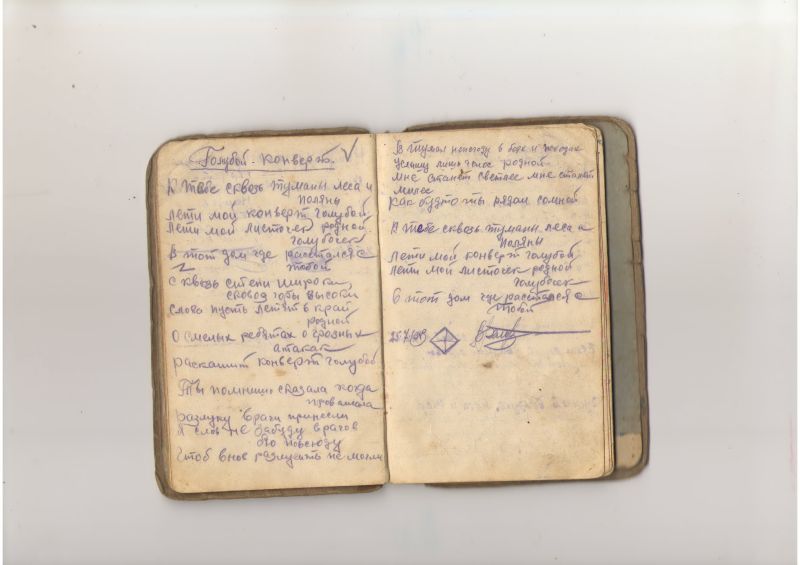 Голубой конверт. V
К тебе сквозь туманы леса и
поляны
Лети мой конверт голубой
Лети мой листочек родной
голубочек
В тот дом где расстался с
тобой
2
Сквозь степи широки,
сквозь горы высоки
Слова пусть летят в край
родной
О смелых ребятах о грозных
атаках
Расскажит конверт голубой
Ты помниш сказала когда
провожала
Разлуку враги принесли
Я слов не забуду врагов
бью повсюду
Чтоб вновь разлучить не могли
В туман непогоду в боях и походах
Услышу лиш голос родной
Мне станет светлее мне станет
милее
Как будто ты рядом сомной
К тебе сквозь туманы леса и
поляны
Лети мой конверт голубой
Лети мой листочек родной
голубочек
В тот дом где расстался с
тобой